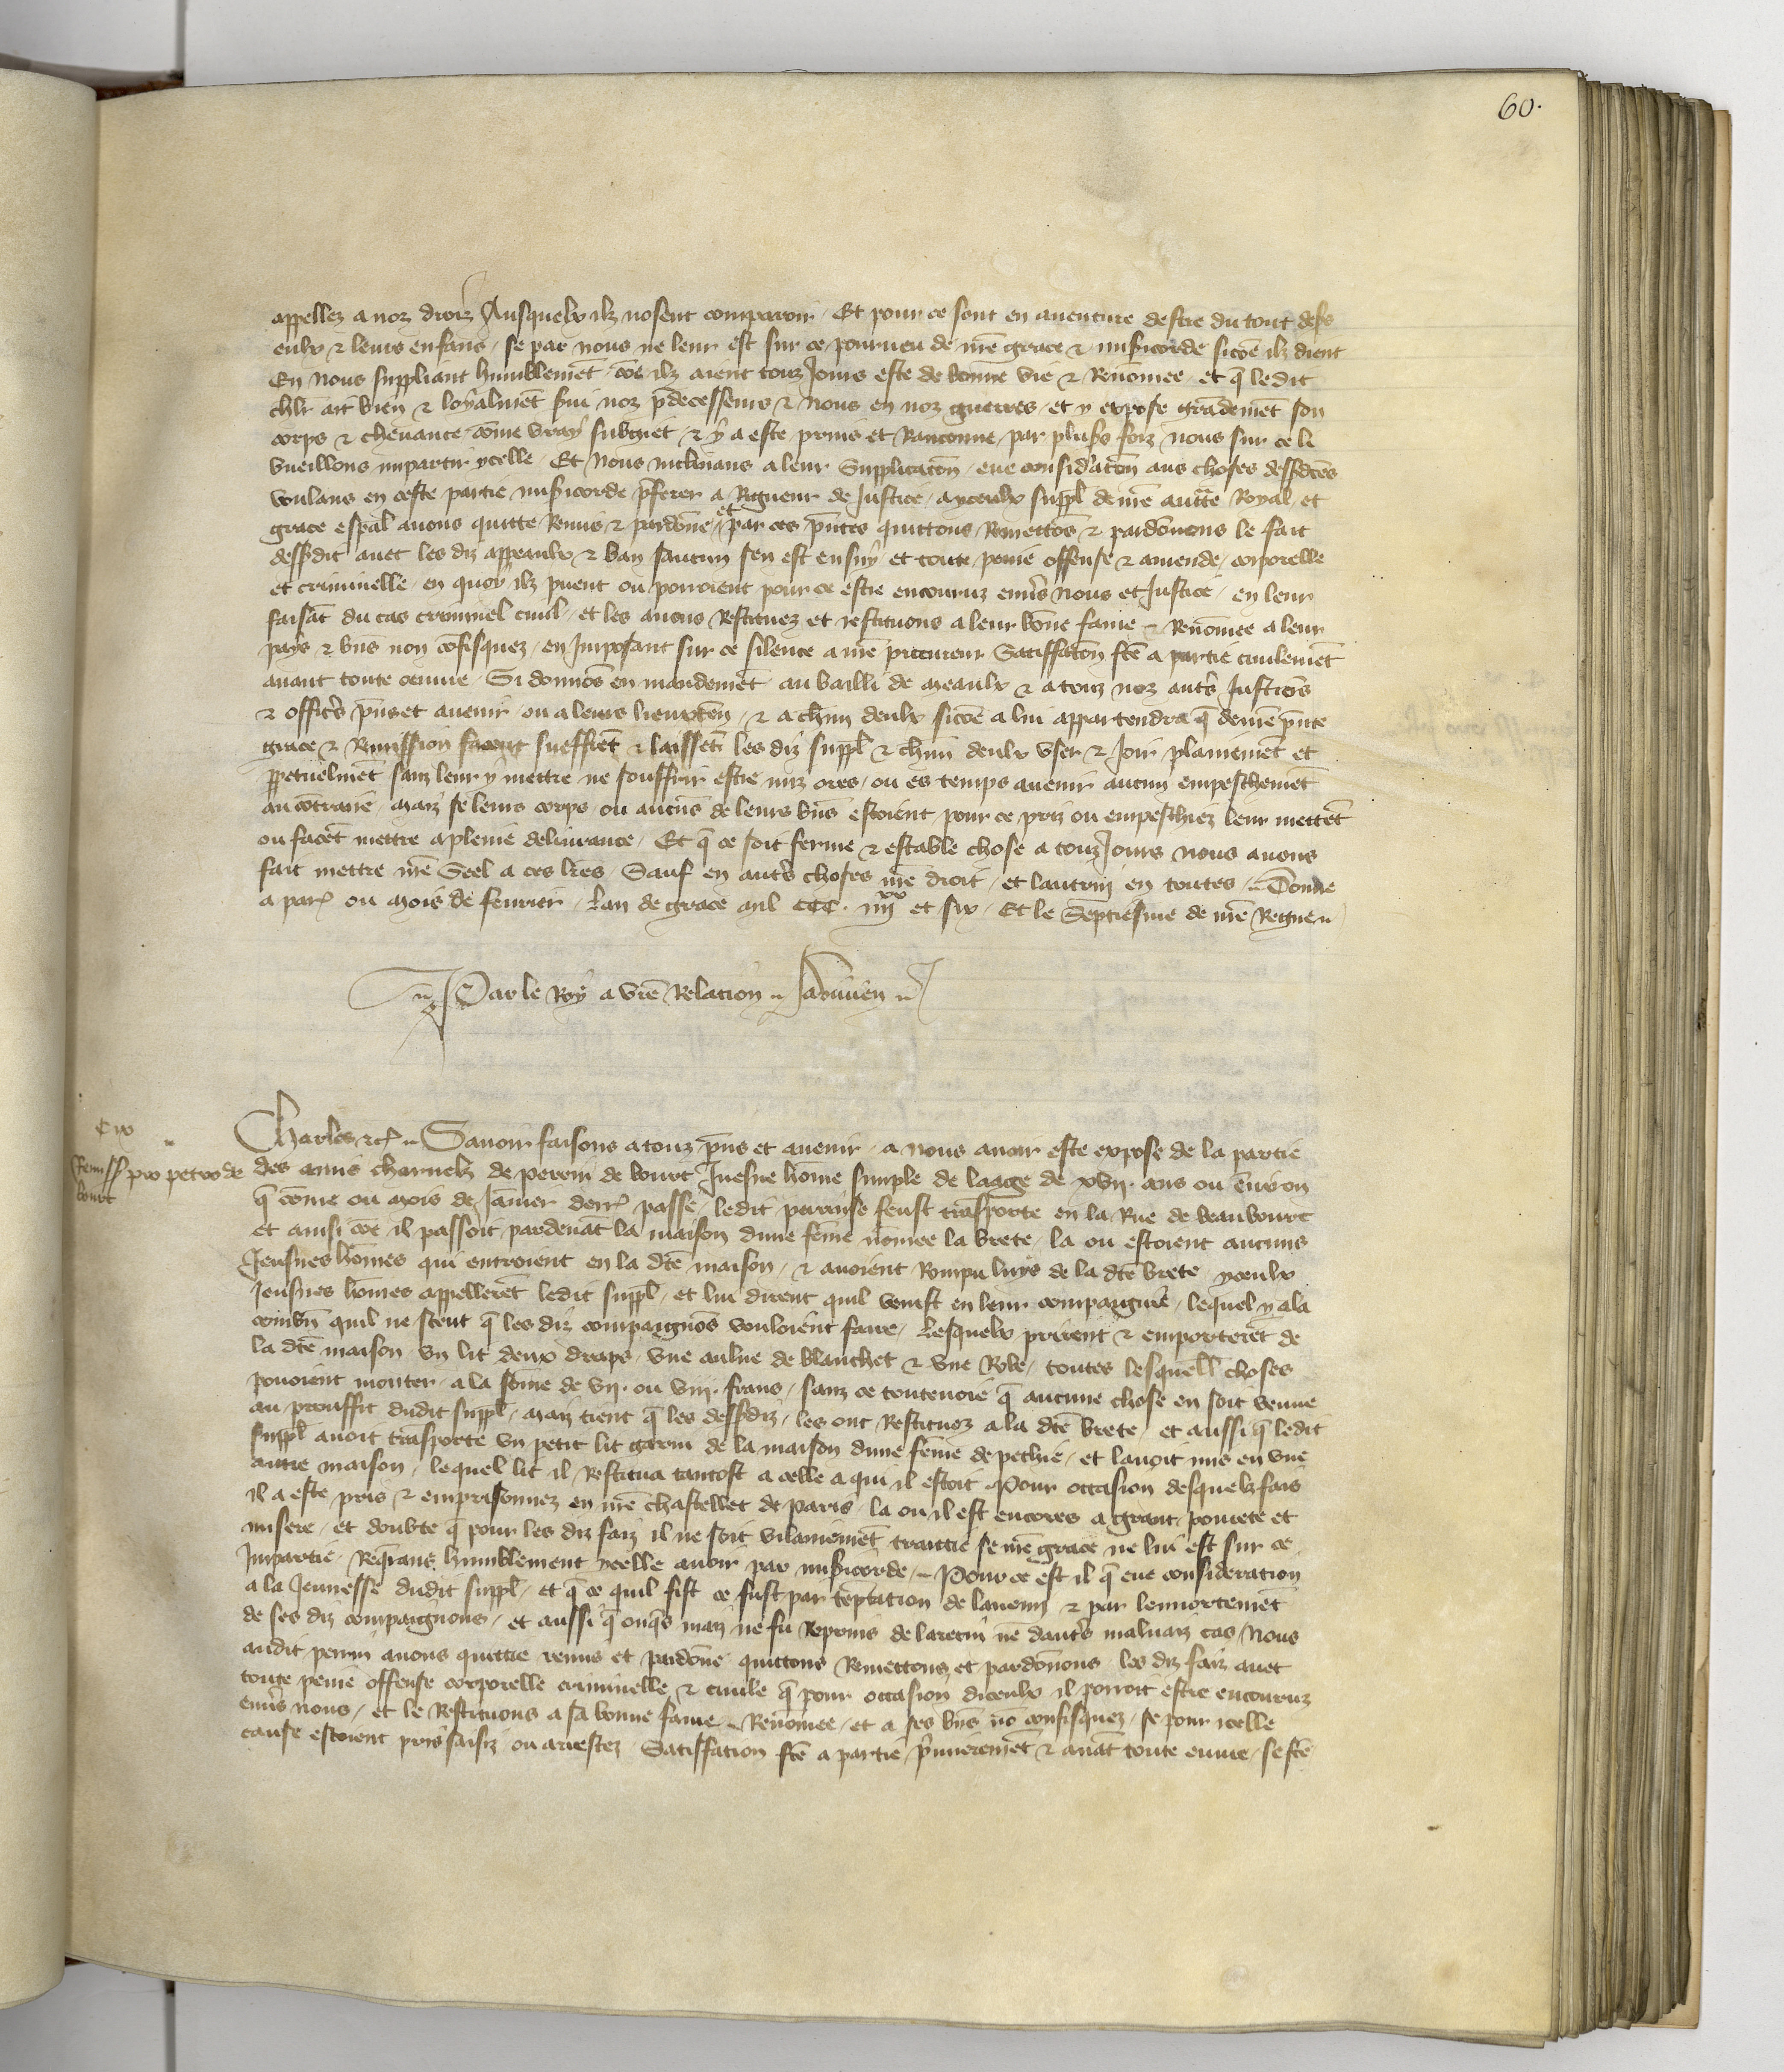 60.
appellez a noz droiz Ausquelx ilz nosent comparoir Et pour ce sont en auenture destre du tout desers
eulx & leurs enfans se par nous ne leur est sur ce pourueu de nre grace & misicorde sicoe ilz dient
En nous suppliant humblemet coe ilz aient touz Jours este de bonne vie & Renomee et q ledit
chlr ait bien & loyalmet serui noz pdecesseurs & nous en noz guerres et y expose grademet son
corps & cheuance come vray subgiet & y a este prins et Ranconne par plusrs foiz nous sur ce li
vueillons impartir ycelle Et Nous inclinans a leur Supplicacon eue considacon aus choses dessdctes
voulans en ceste partie misicorde pferer a Rigueur de Justice a yceulx suppl de nre auctte Royal et
grace espal auons quitte Remis & pardone et par ces pntes quittons Remettos & pardonnons le fait
dessdit auec les diz appeaulx & ban saucun sen est ensuy et toute peine offense & amende corporelle
et criminelle en quoy ilz puent ou porroient pour ce estre encouruz enuers Nous et Justice en leur
faisat du cas criminel ciuil et les auons Restituez et restituons a leur bone fame & Renomee a leur
pays & bns non cofisquez en Imposant sur ce silence a nre procureur Satiffacon fce a partie ciuilemet
auant toute oeuure Si donnos en mandemet au bailli de Meaulx & a touz noz auts Justicis
& officrs pns et auenir ou a leurs lieuxten & a chun deulx sicoe a lui appartendra q de nre pnte
grace & Remission facent sueffret & laisset les diz suppl & chun deulx vser & Joir plainemet et
ppetuelmet sanz leur y mettre ne souffrir estre mis ores ou es temps auenir aucun empeschemet
au cotraire maiz se leurs corps ou aucus de leurs bns estoient pour ce priz ou empeschiez leur mettet
ou facet mettre a pleine deliurance Et q ce soit ferme & estable chose a touz Jours nous auons
fait mettre nre Seel a ces lres Sauf en auts choses nre droit et lautrui en toutes Donne
a par ou mois de feurier Lan de grace mil CCC iiii xx et six Et le Septiesme de nre Regne
Par le Roy a vre Relacion
Cix
Remiss pro petro de
bourt
Charles &c Sauoir faisons a touz pns et auenir a nous auoir este expose de la partie
des amis charnelz de perrin de bourt Juesne home simple de laage de xvii ans ou enuiron
q come ou mois de Januier derr passe ledit perrin se feust trasporte en la Rue de beaubourt
et ainsi coe il passoit pardeuat la maison dune feme nomee la brete la ou estoient aucuns
Jeusnes homes qui entroient en la dte maison & auoient Rompu luys de la dte brete yceulx
Jeusnes homes appelleret ledit suppl et lui dirent quil venist en leur compaignie lequel y ala
combn quil ne sceut q les diz compaignos vouloient faire Lesquelx prirent & emporteret de
la dte maison vn lit deux draps vne aulne de blanchet & vne Robe toutes lesquell choses
pouoient monter a la some de vii ou viii frans sanz ce toutenoie q aucune chose en soit venue
au prouffit dudit suppl maiz tient q les dessdiz les ont Restituez a la dte brete et aussi q ledit
suppl auoit trasporte vn petit lit garni de la maison dune feme de pechie et lauoit mis en vne
autre maison lequel lit il Restitua tantost a celle a qui il estoit Pour occasion desquelz fais
il a este pris & emprisonnez en nre chastellet de paris la ou il est encores a grant pourete et
misere et doubte q pour les diz faiz il ne soit vilainemet traittie se nre grace ne lui est sur ce
Impartie Reqrans humblement ycelle auoir par misicorde Pour ce est il q eue consideration
a la Jeunesse dudit suppl et q ce quil fist ce fust par teptation de lanemi & par lennortemet
de ses diz compaignons et aussi q onqs maiz ne fu Reprins de larrecin ne dauts maluaiz cas Nous
audit perrin auons quittie remis et pardone quittons Remettons et pardonons les diz faiz auec
toute peine offense corporelle criminelle & ciuile q pour occasion diceulx il porroit estre encouruz
enuers nous et le Restituons a sa bonne fame Renomee et a ses bns no confisquez se pour icelle
cause estoient pris saisiz ou arrestez Satiffation fce a partie primieremet & auat toute euure se fce